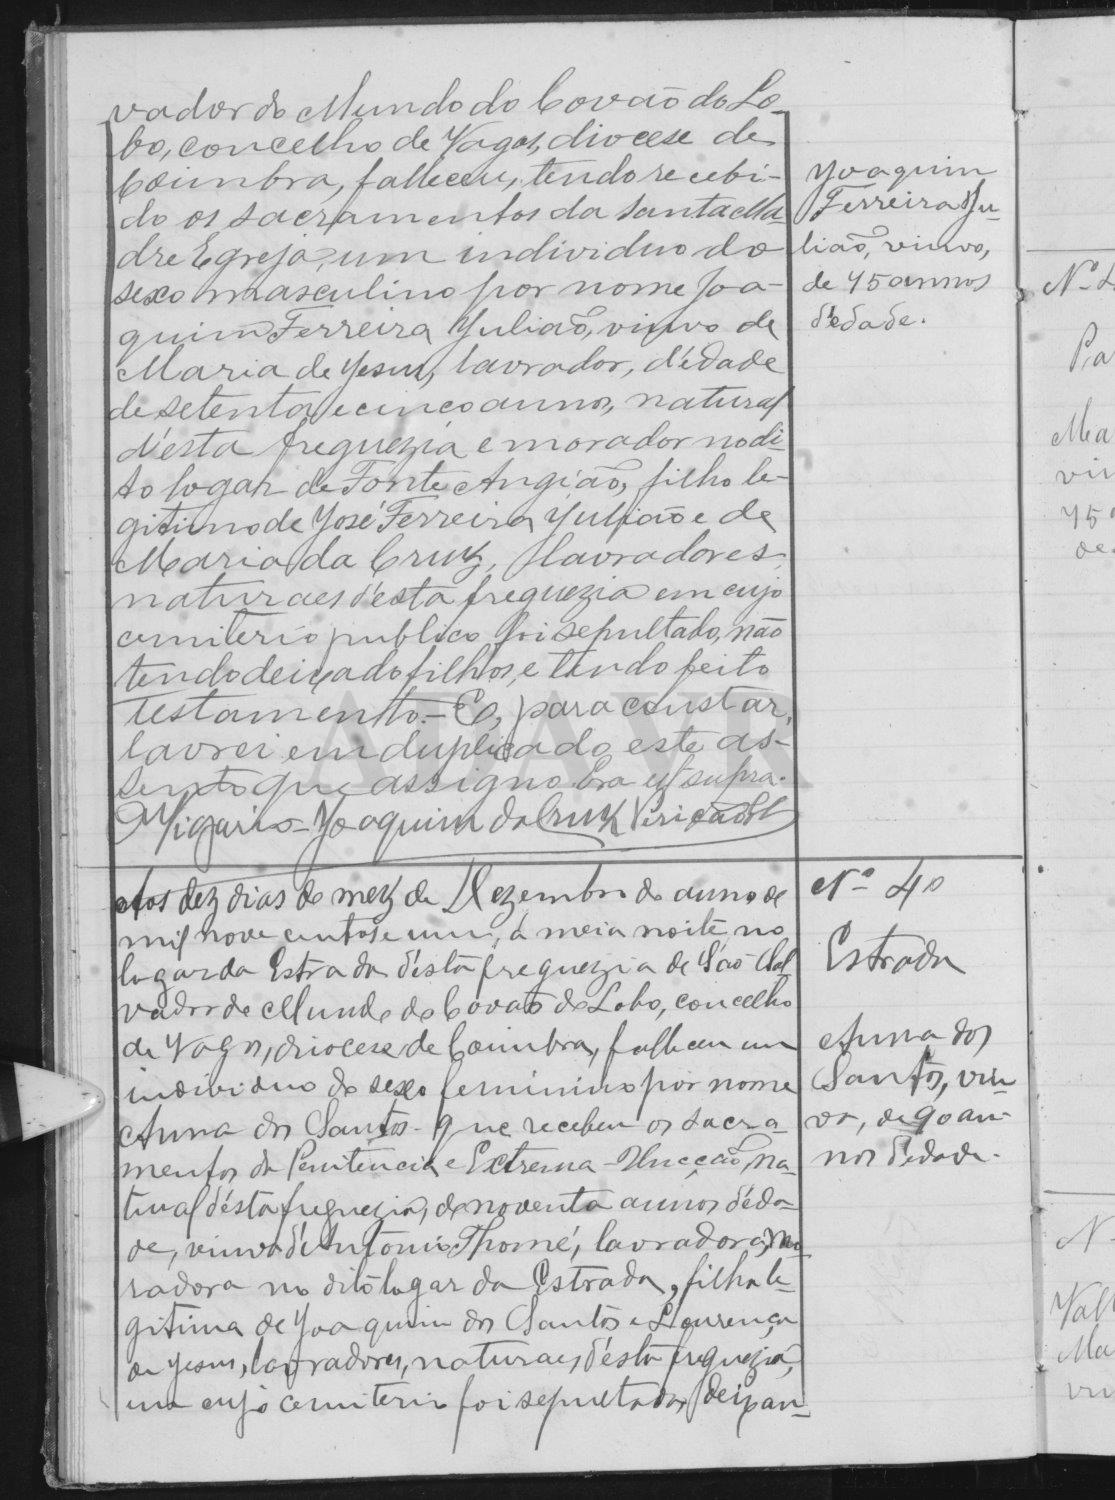 vador do Mundo do Covão do Lo-
bo, concelho de Vagos, diocese de
Coimbra, falleceu, tendo recebi-
do os sacramentos da Santa Ma-
dre Egreja, um individuo do
sexo masculino por nome Joa-
quim Ferreira Julião, viuvo de
Maria de Jesus, lavrador, d'edade
de setenta e cinco annos, natural
d'esta freguezia e morador no di-
to logar de Fonte Angião, filho le-
gitimo de José Ferreira Julião e de
Maria da Cruz, lavradores,
naturaes d'esta freguezia em cujo
cemiterio publico foi sepultado, não
tendo deixado filhos, e tendo feito
testamento. - E, para constar,
lavrei em duplicado este as-
sento que assigno. Era ut supra.
O Vigario - Joaquim da Cruz
Joaquim
Ferreira Ju-
lião, viuvo,
de 75 annos
d'edade.
Aos dez dias do mez de Dezembro do anno de
mil nove centos e um, á meia noite, no
logar da Estrada d'esta freguezia de São Sal-
vador do Mundo do Covão do Lobo, concelho
de Vagos, diocese de Coimbra, falleceu um
individuo do sexo feminino por nome
Anna dos Santos - que recebeu os sacra-
mentos da Penitencia e Extrema-Uncção, na-
tural d'esta freguezia, de noventa annos d'eda-
de, viuva d'Antonio Thomé, lavradora, mo-
radora no dito logar da Estrada, filha le-
gitima de Joaquim dos Santos e Lourença
de Jesus, lavradores, naturaes d'esta freguezia,
em cujo cemiterio foi sepultada, deixan-
Nº 40
Estrada
Anna dos
Santos, viu-
va, de 90 an-
nos d'edade.
Nº 4
Ma
vi
75
de
N
Vall
Ma
viu
ADAVR